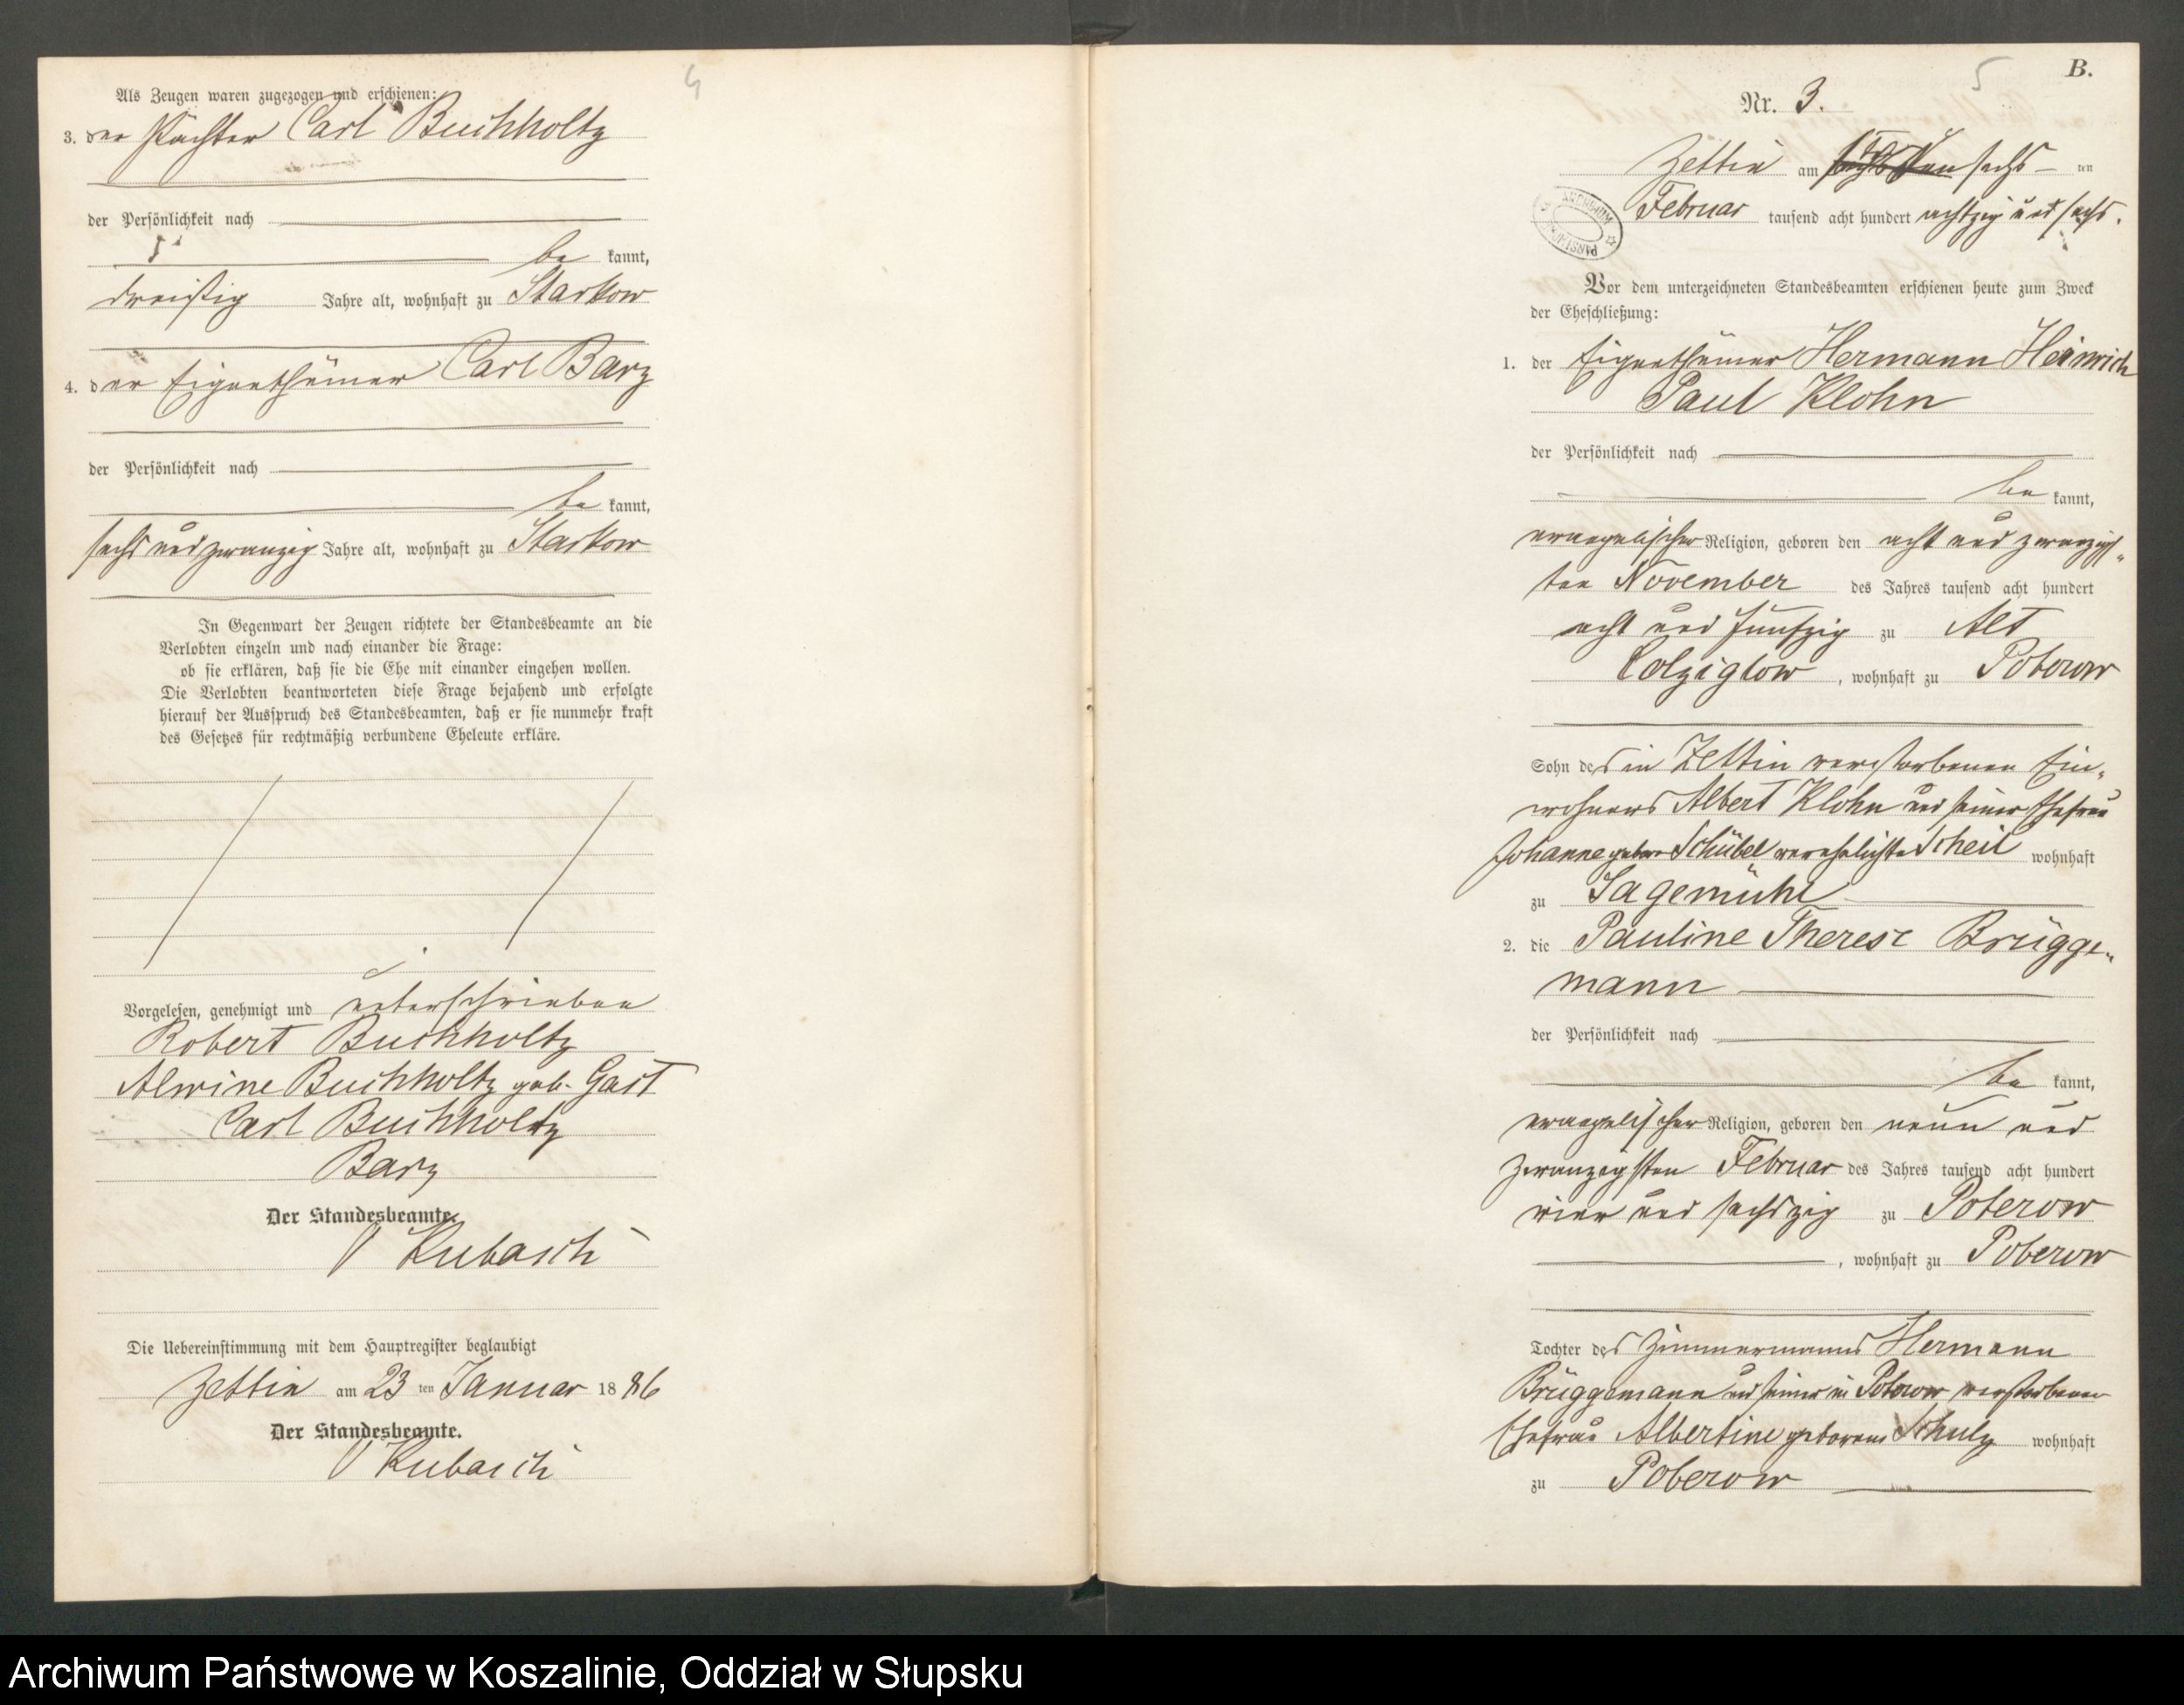 4
Als Zeugen waren zugezogen und erschienen:
3. der Pächter Carl Buchholtz
der Persönlichkeit nach
be kannt,
dreißig Jahre alt, wohnhaft zu Starkow
4. der Eigenthümer Carl Barz
der Persönlichkeit nach
be kannt,
sechs und zwanzig Jahre alt, wohnhaft zu Starkow
In Gegenwart der Zeugen richtete der Standesbeamte an die
Verlobten einzeln und nach einander die Frage:
ob sie erklären, daß sie die Ehe mit einander eingehen wollen.
Die Verlobten beantworteten diese Frage bejahend und erfolgte
hierauf der Ausspruch des Standesbeamten, daß er sie nunmehr kraft
des Gesetzes für rechtmäßig verbundene Eheleute erkläre.
Vorgelesen, genehmigt und unterschrieben
Robert Buchholtz
Alwine Buchholtz geb. Gast
Carl Buchholtz
Barz
Der Standesbeamte.
Kubasch
Die Uebereinstimmung mit dem Hauptregister beglaubigt
Zettin am 23 ten Januar 18 86
Der Standesbeamte.
Kubasch
5
B.
Nr. 3.
Zettin am sechs ten
Februar tausend acht hundert achtzig und sechs.
Vor dem unterzeichneten Standesbeamten erschienen heute zum Zweck
der Eheschließung:
1. der Eigenthümer Hermann Heinrich
Paul Klohn
der Persönlichkeit nach
be kannt,
evangelischer Religion, geboren den acht und zwanzigs-
ten November des Jahres tausend acht hundert
acht und fünfzig zu Alt
Colziglow, wohnhaft zu Poberow
Sohn des in Zettin verstorbenen Ein-
wohners Albert Klohn und seiner Ehefrau
Johanne geboren Schübel verehelichte Scheil wohnhaft
zu Sagemühl
2. die Pauline Therese Brügge-
mann
der Persönlichkeit nach
be kannt,
evangelischer Religion, geboren den neun und
zwanzigsten Februar des Jahres tausend acht hundert
vier und sechszig zu Poberow
, wohnhaft zu Poberow
Tochter des Zimmermanns Hermann
Brüggemann und seiner in Poberow verstorbenen
Ehefrau Albertine geborene Schulz wohnhaft
zu Poberow
Archiwum Państwowe w Koszalinie, Oddział w Słupsku